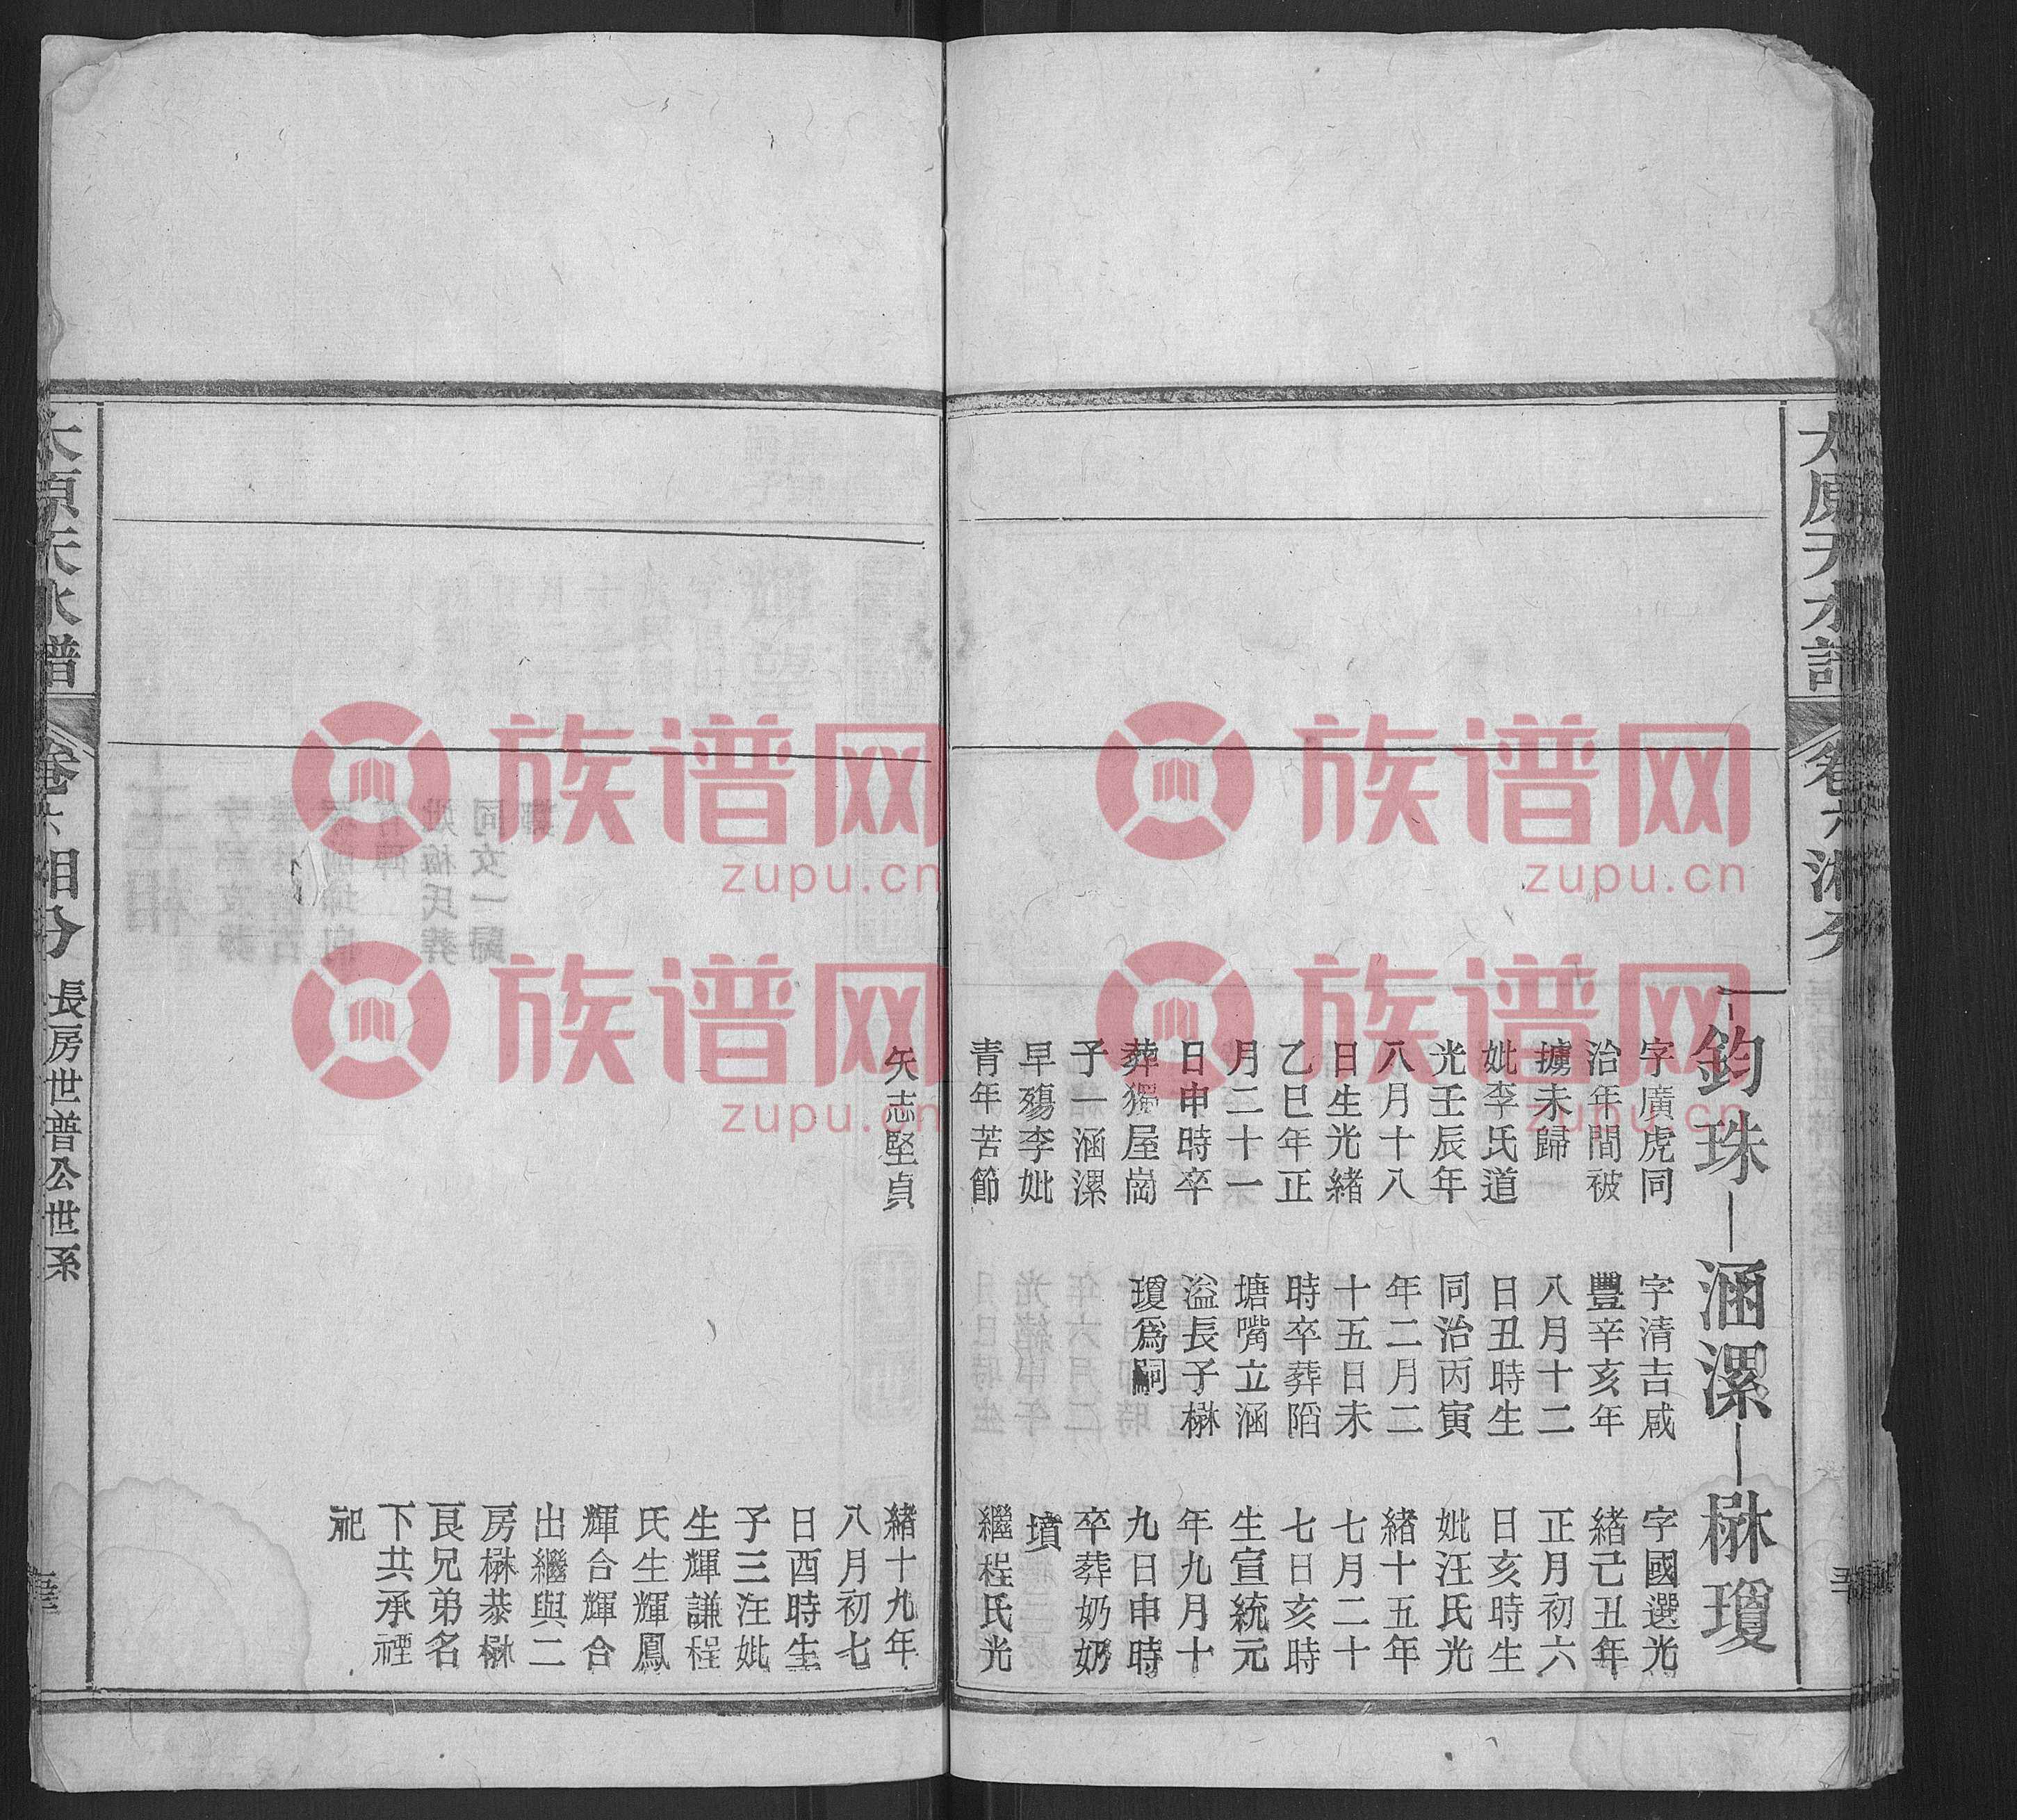 太原天水譜
卷六湘分
鈞珠
字廣虎同
治年間被
擄未歸
妣李氏道
光壬辰年
八月十八
日生光緒
乙巳年正
月二十一
日申時卒
葬獨屋崗
子一涵漯
早殤李妣
青年苦節
矢志堅貞
涵漯
字清吉咸
豐辛亥年
八月十二
日丑時生
同治丙寅
年二月二
十五日未
時卒葬陷
塘嘴立涵
溢長子楙
瓊爲嗣
楙瓊
字國選光
緒己丑年
正月初六
日亥時生
妣汪氏光
緒十五年
七月二十
七日亥時
生宣統元
年九月十
九日申時
卒葬奶奶
墳
繼程氏光
緒十九年
八月初七
日酉時生
子三汪妣
生輝謙程
氏生輝鳳
輝合輝合
出繼與二
房楙恭楙
良兄弟名
下共承禋
祀
太原天水譜
卷六湘分
長房世普公世系
族谱网
zupu.cn
族谱网
zupu.cn
族谱网
zupu.cn
族谱网
zupu.cn